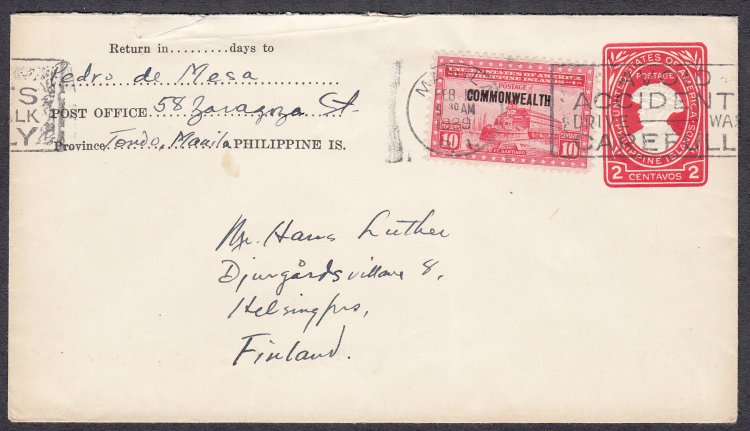 Return in.........days to
Pedro de Mesa
POST OFFICE 58 Zaragoza St.
Province Tondo, Manila PHILIPPINE IS.
TS
ALK
LY
UNITED STATES OF AMERICA
PHILIPPINE ISLANDS
POSTAGE
COMMONWEALTH
10 10
FEB
9 30 AM
1939
ACCIDENT
DRIVE WA
CAREFULL
UNITED STATES OF AMERICA
POSTAGE
PHILIPPINE ISLANDS
2 2
CENTAVOS
Mr. Hans Luther
Djurgårdsvillan 8,
Helsingfors,
Finland.